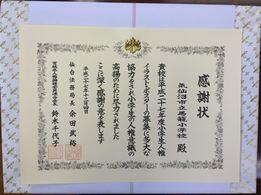 感謝状
気仙沼市立馬籠小学校 殿
貴校は平成二十七年度小学生人権
イラストポスターの募集に多大な
協力をされ小学生の人権意識の
高揚のために尽力されました
ここに深く感謝の意を表します
平成二十七年十二月四日
仙台法務局長 余田武裕
鈴木千代子